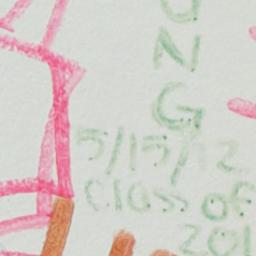 U
N
G
5/15/12
Class of
201